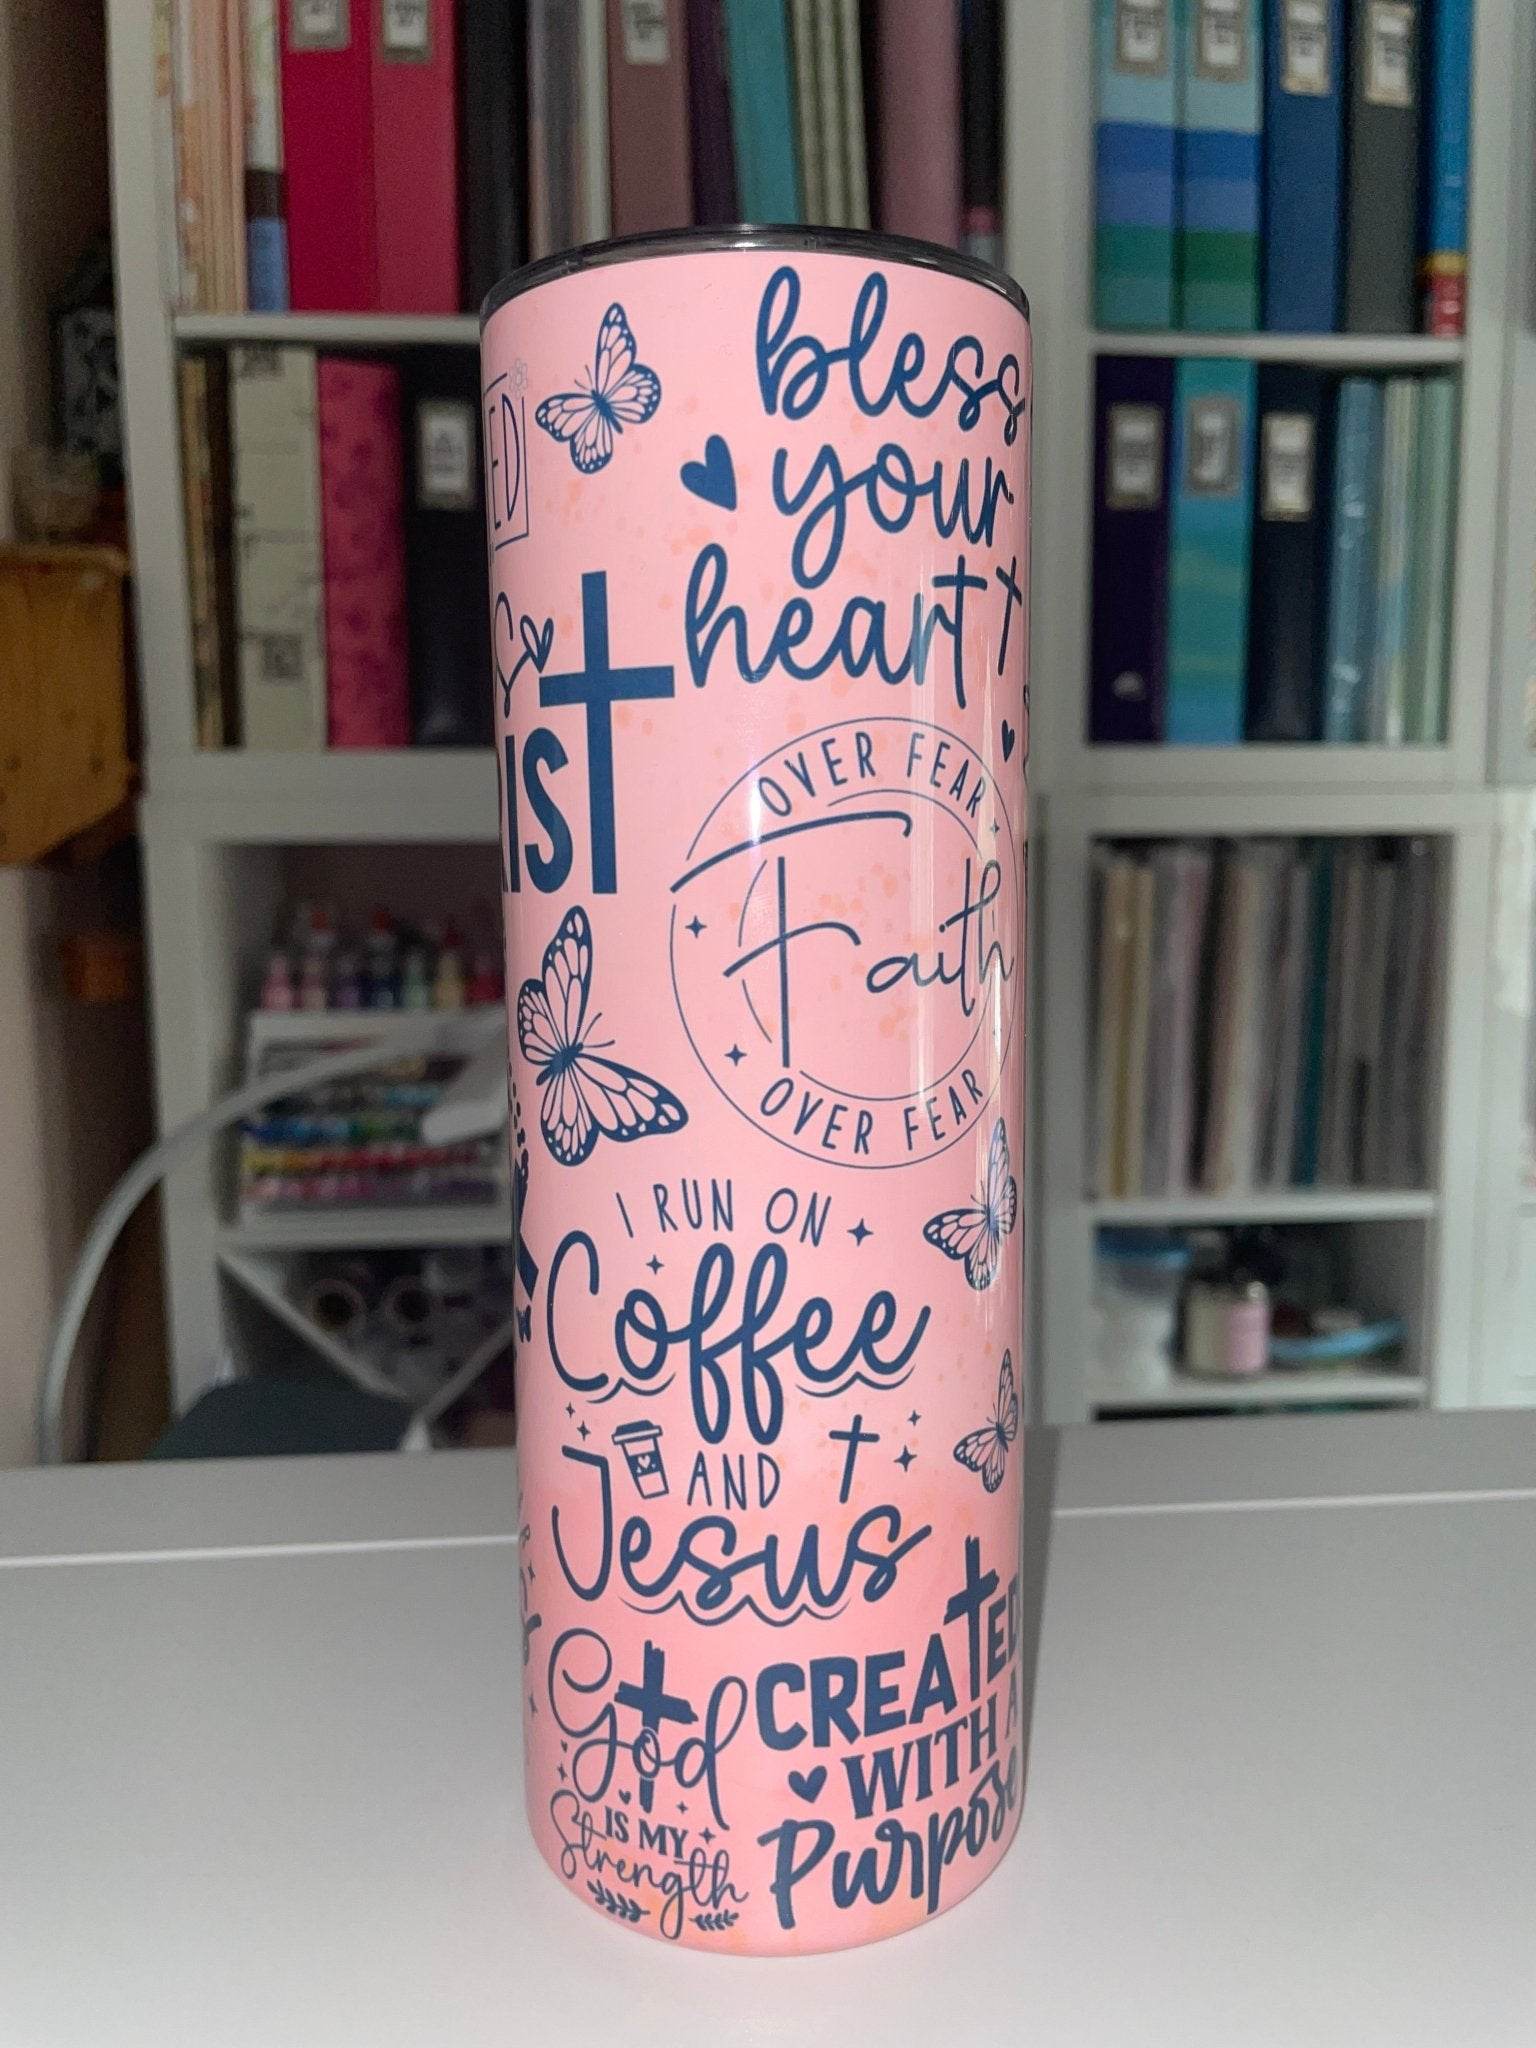 bless
your
heart
OVER FEAR
Faith
OVER FEAR
I RUN ON
Coffee
AND
Jesus
God
IS MY
Strength
CREATED
WITH A
Purpose